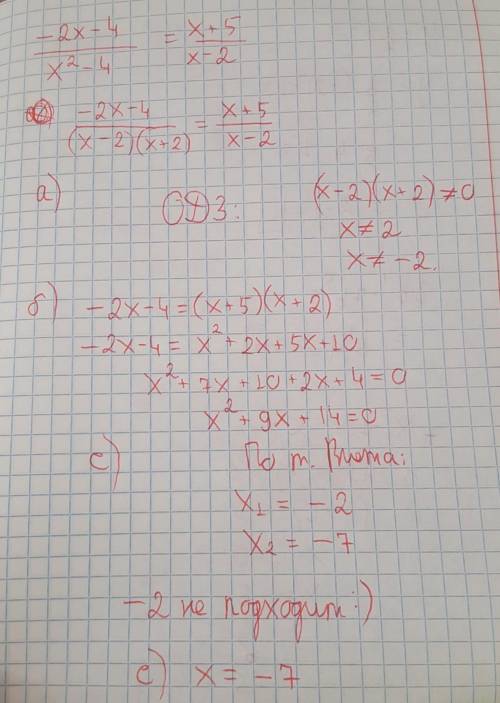 (-2x-4)/(x²-4) = (x+5)/(x-2)
(-2x-4)/((x-2)(x+2)) = (x+5)/(x-2)
а) ОДЗ: (x-2)(x+2)≠0
x≠2
x≠-2.
б) -2x-4=(x+5)(x+2)
-2x-4= x²+2x+5x+10
x²+7x+10+2x+4=0
x²+9x+14=0
с) По т. Виета:
x₁ = -2
x₂ = -7
-2 не подходит:)
е) x= -7